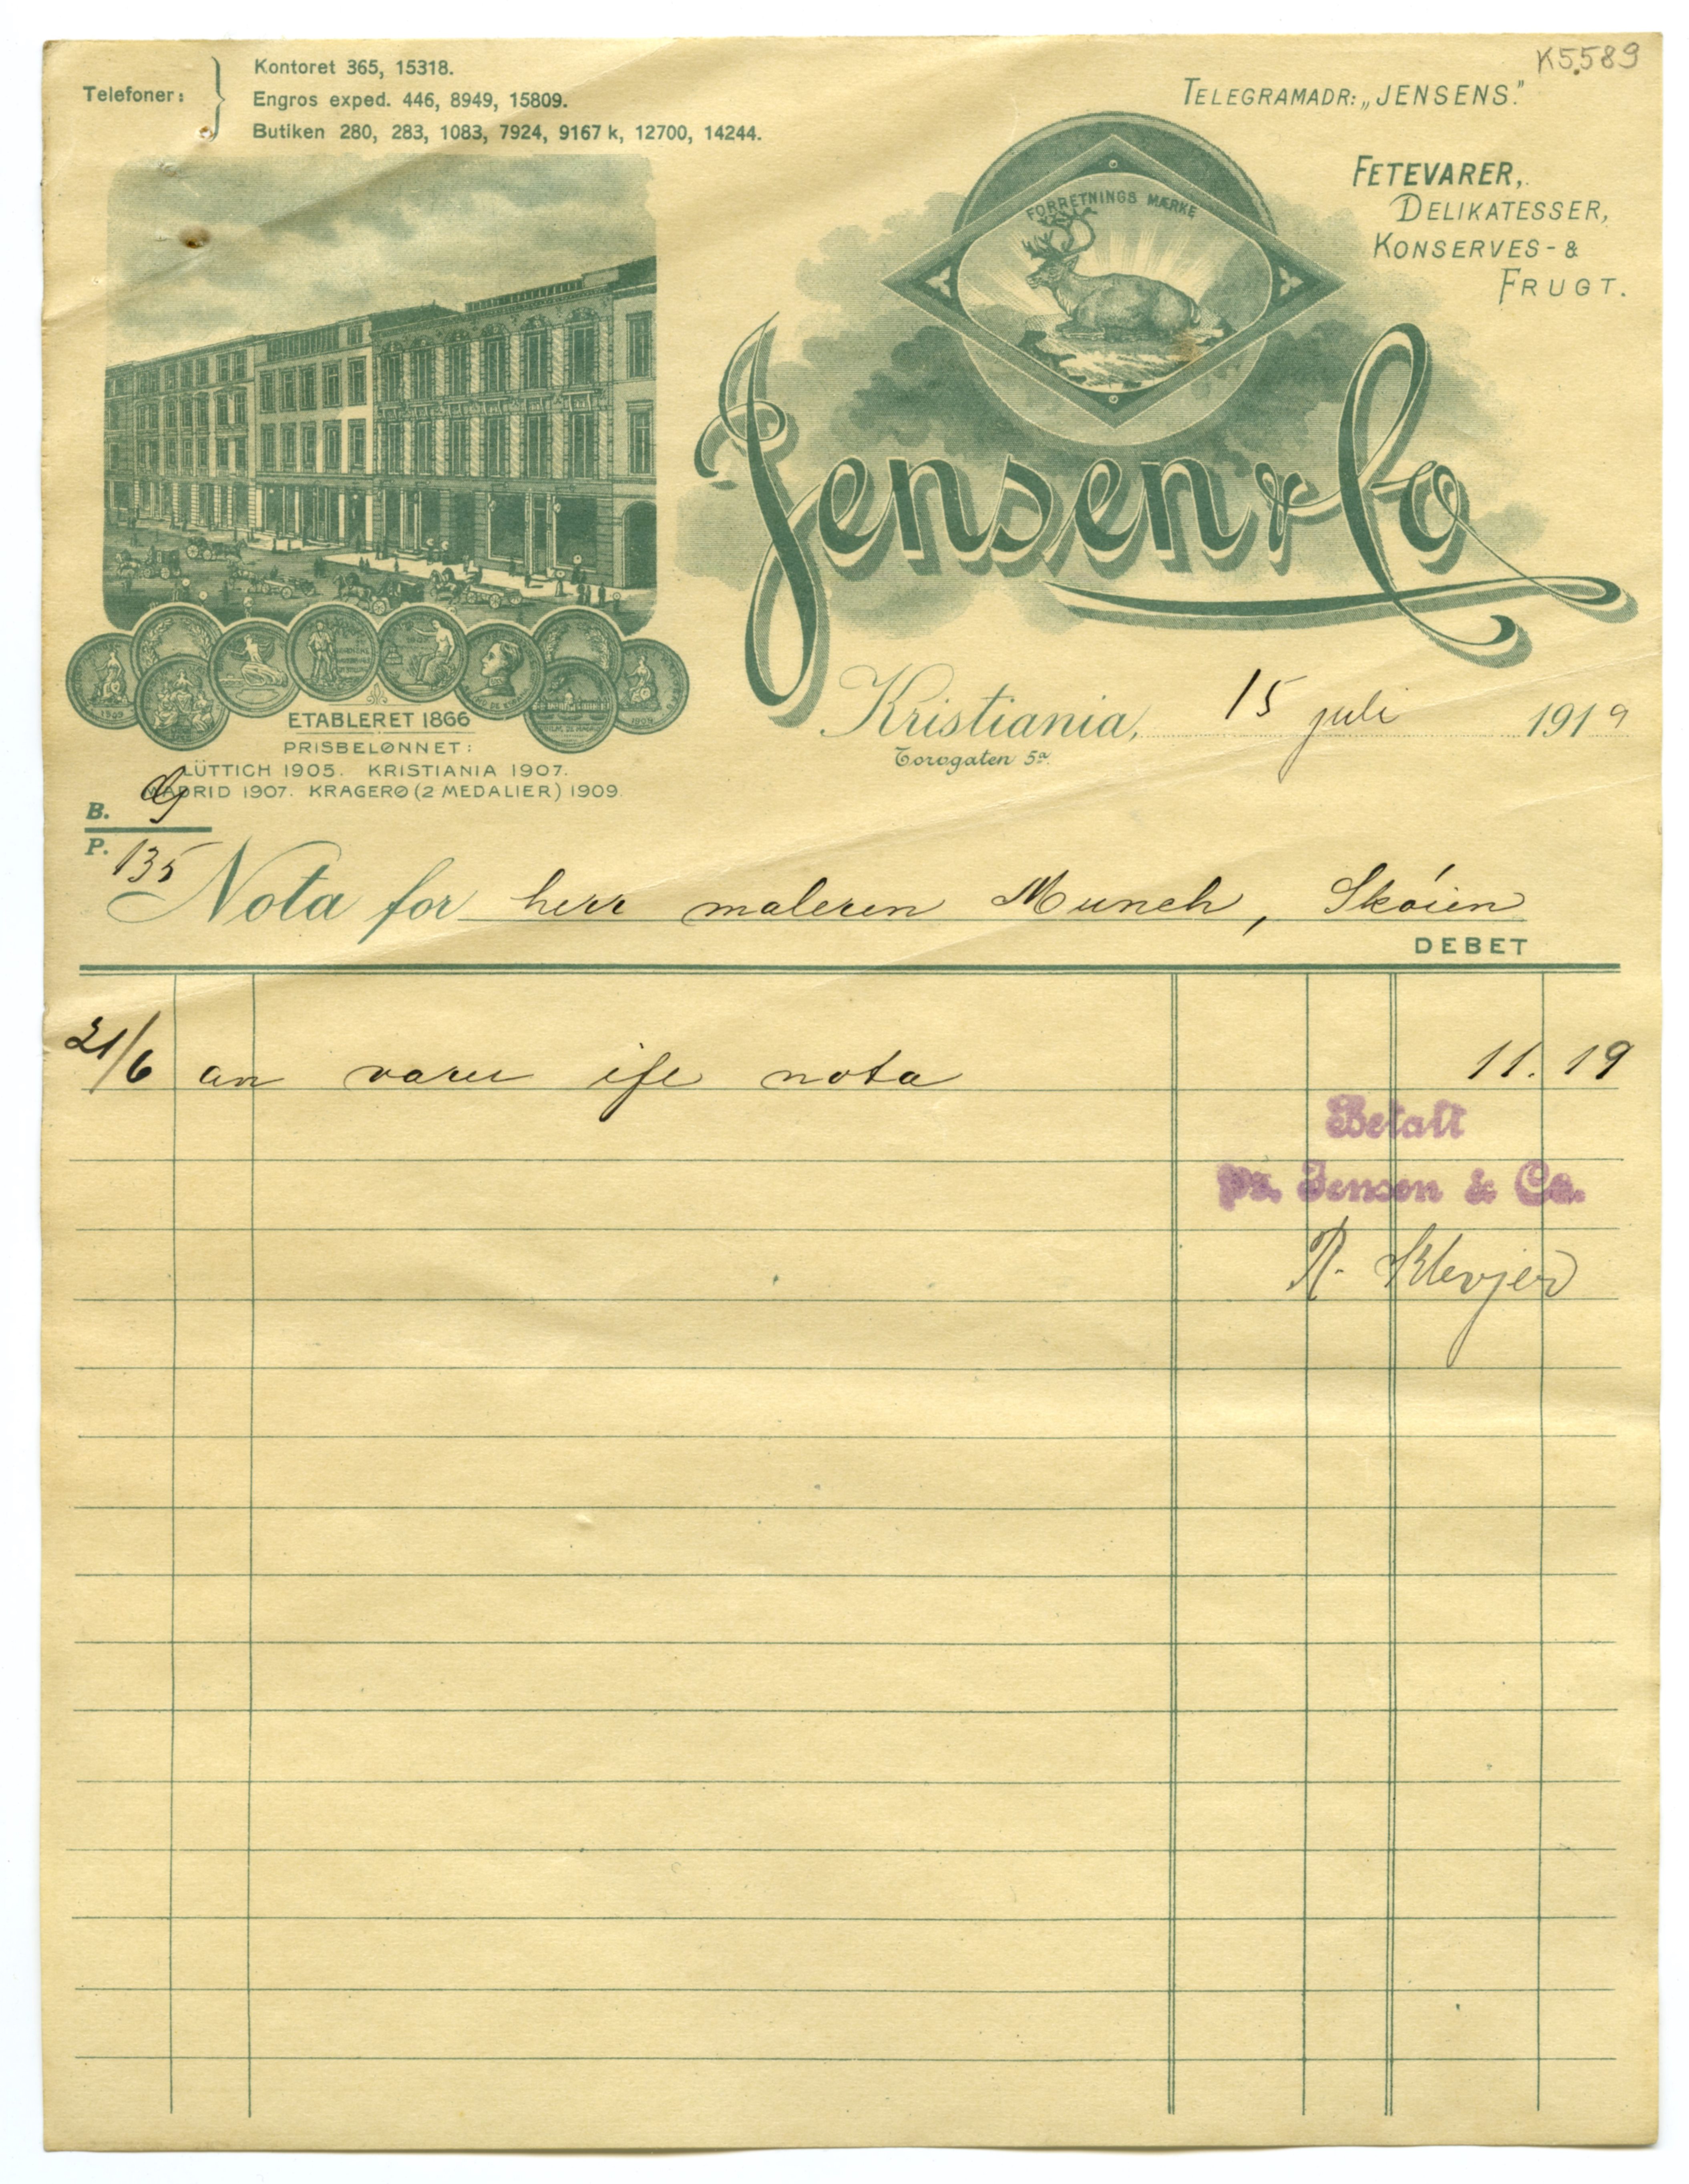 K5589
Telefoner:
Kontoret 365, 15318.
Engros exped. 446, 8949, 15809.
Butiken 280, 283, 1083, 7924, 9167 k, 12700, 14244.
TELEGRAMADR: „JENSENS."
FETEVARER,
DELIKATESSER,
KONSERVES- &
FRUGT.
FORRETNINGS MÆRKE
Jensen & Co
ETABLERET 1866
PRISBELØNNET:
LÜTTICH 1905. KRISTIANIA 1907.
MADRID 1907. KRAGERØ (2 MEDALIER) 1909.
Kristiania, 15 juli 1919
Torvgaten 5a.
B.
P. 135
Nota for herr maleren Munch, Skøien
DEBET
21/6 an varer ifl nota 11.19
Betalt
pr. Jensen & Co.
R. Klevjer